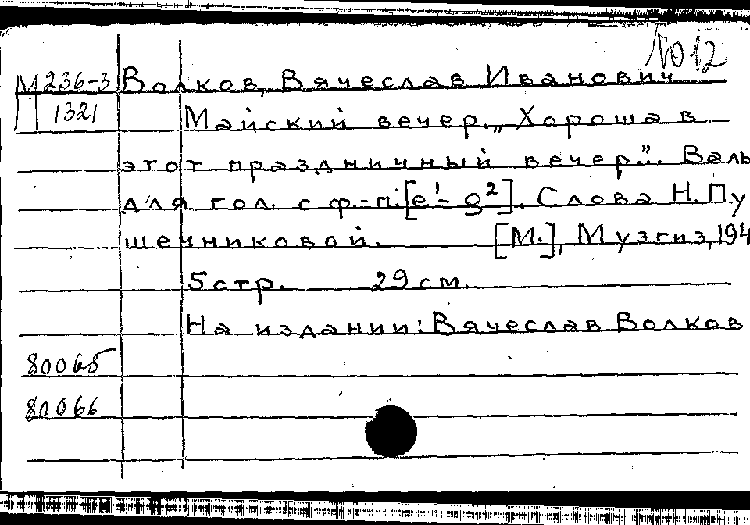 №12
М 236-3 Волков, Вячеслав Иванович
П 1321 Майский вечер. „Хороша в
этот праздничный вечер". Валь
для гол. с ф.-п. [e¹- g²]. Слова Н. Пу
шенниковой. [М.], Музгиз, 194
5 стр. 29 см.
На издании: Вячеслав Волков
80065
80066